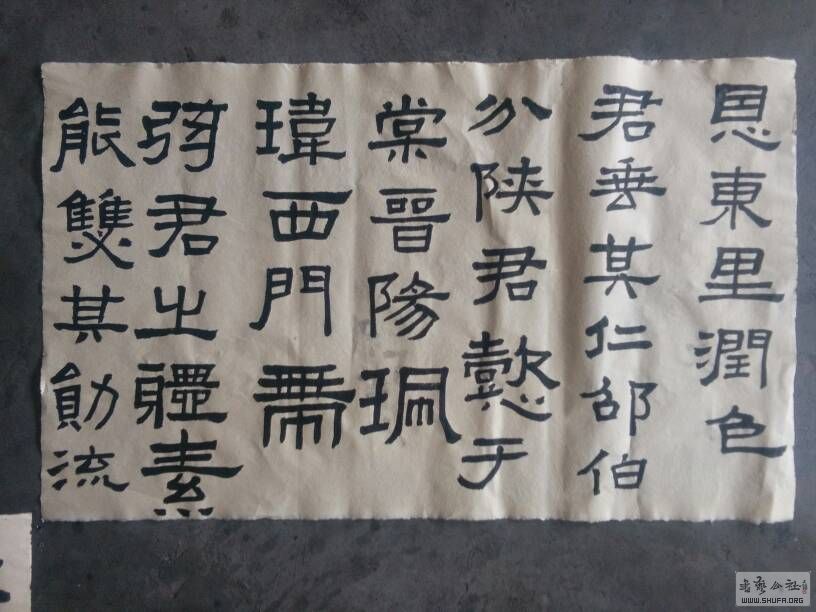 恩東里潤色
君垂其仁邵伯
分陝君懿于
棠晉陽珮
瑋西門帶
弦君之體素
能雙其勛流
書藝公社
WWW.SHUFA.ORG